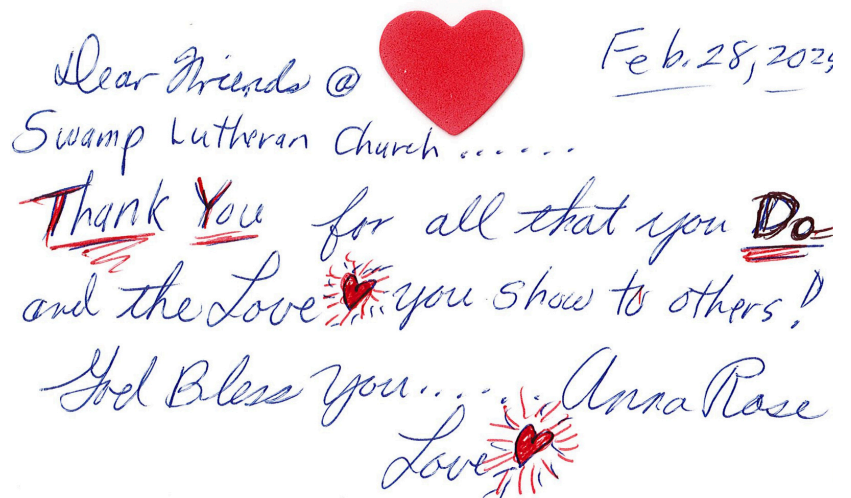 Feb. 28, 2025
Dear Friends @
Swamp Lutheran Church ......
Thank You for all that you Do
and the Love you show to others!
God Bless You....... Anna Rose
Love